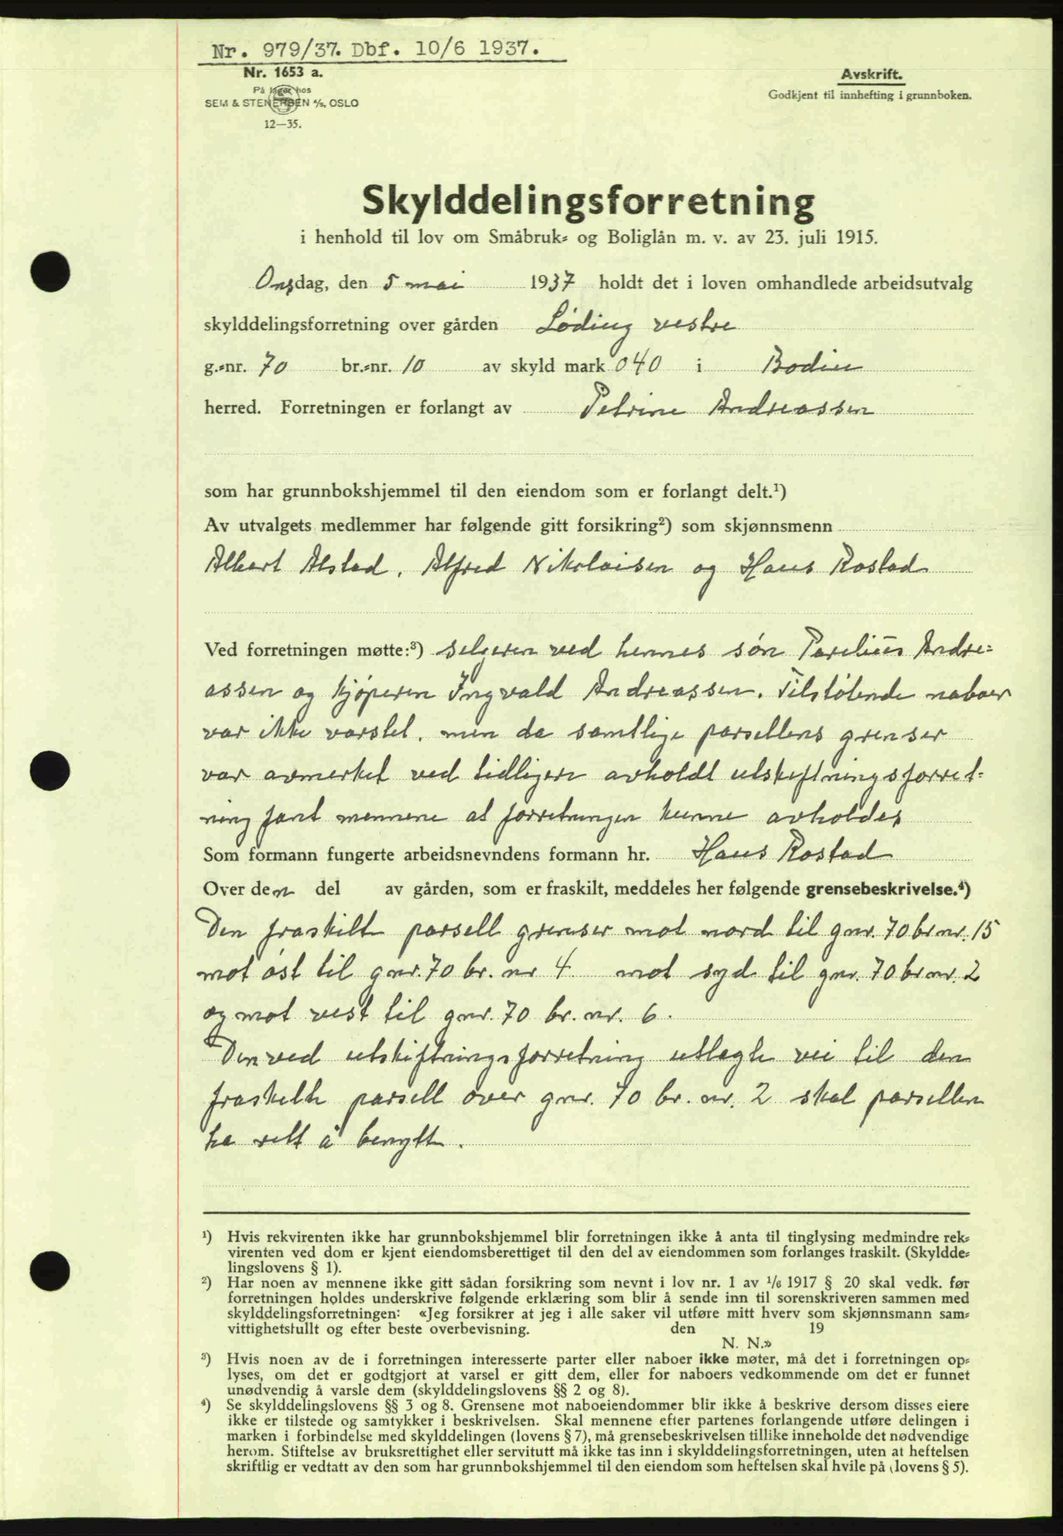 Nr. 979/37. Dbf. 10/6 1937.
Nr. 1653 a.
På lager hos
SEM & STENERSEN A/S, OSLO
12—35.
Avskrift.
Godkjent til innhefting i grunnboken.
Skylddelingsforretning
i henhold til lov om Småbruk- og Boliglån m. v. av 23. juli 1915.
Onsdag, den 5 mai 1937 holdt det i loven omhandlede arbeidsutvalg
skylddelingsforretning over gården Løding vestre
g.-nr. 70 br.-nr. 10 av skyld mark 040 i Bodin
herred. Forretningen er forlangt av Petrine Andreassen
som har grunnbokshjemmel til den eiendom som er forlangt delt.¹)
Av utvalgets medlemmer har følgende gitt forsikring²) som skjønnsmenn
Albert Alstad, Alfred Nikolaisen og Hans Rostad
Ved forretningen møtte:³) selgeren ved hennes søn Parelius Andre-
assen og kjøperen Ingvald Andreassen. Tilstøtende naboer
var ikke varslet, men da samtlige parsellens grenser
var avmerket ved tidligere avholdt utskiftningsforret-
ning fant mennene at forretningen kunne avholdes
Som formann fungerte arbeidsnevndens formann hr. Hans Rostad
Over den del av gården, som er fraskilt, meddeles her følgende grensebeskrivelse.⁴)
Den fraskilte parsell grenser mot nord til gnr. 70 br.nr. 15
mot øst til gnr. 70 br. nr 4 mot syd til gnr. 70 br.nr. 2
og mot vest til gnr. 70 br. nr. 6.
Den ved utskiftningsforretning utlagte vei til den
fraskilte parsell over gnr. 70 br. nr. 2 skal parsellen
ha rett å benytte.
¹) Hvis rekvirenten ikke har grunnbokshjemmel blir forretningen ikke å anta til tinglysing medmindre rek-
virenten ved dom er kjent eiendomsberettiget til den del av eiendommen som forlanges fraskilt. (Skyldde-
lingslovens § 1).
²) Har noen av mennene ikke gitt sådan forsikring som nevnt i lov nr. 1 av 1/6 1917 § 20 skal vedk. før
forretningen holdes underskrive følgende erklæring som blir å sende inn til sorenskriveren sammen med
skylddelingsforretningen: «Jeg forsikrer at jeg i alle saker vil utføre mitt hverv som skjønnsmann sam-
vittighetsfullt og efter beste overbevisning. den 19
N. N.»
³) Hvis noen av de i forretningen interesserte parter eller naboer ikke møter, må det i forretningen op-
lyses, om det er godtgjort at varsel er gitt dem, eller for naboers vedkommende om det er funnet
unødvendig å varsle dem (skylddelingslovens §§ 2 og 8).
⁴) Se skylddelingslovens §§ 3 og 8. Grensene mot naboeiendommer blir ikke å beskrive dersom disses eiere
ikke er tilstede og samtykker i beskrivelsen. Skal mennene efter partenes forlangende utføre delingen i
marken i forbindelse med skylddelingen (lovens § 7), må grensebeskrivelsen tillike inneholde det nødvendige
herom. Stiftelse av bruksrettighet eller servitutt må ikke tas inn i skylddelingsforretningen, uten at heftelsen
skriftlig er vedtatt av den som har grunnbokshjemmel til den eiendom som heftelsen skal hvile på (lovens § 5).